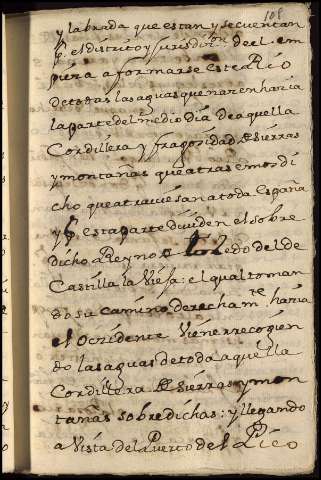 108
y labrada que estan y se cuentan
el distrito y jurisdi.on de el em
pieza a formarse Este Rio
de todas las aguas que naren haria
la parte del medio dia de aquella
Cordillera y fragosidad de sierras
y montañas que atras emos di
cho que atraviesan a toda España
y p esta parte dividen el sobre
dicho Reyno de toledo del de
Castilla la vieja: el qual toman
do su camino derecham.te haria
el Ocridente viene recogien
do las aguas de toda aquella
Cordillera de sierras y mon
tañas sobre dichas: y llegando
a vista del Puerto del Pico